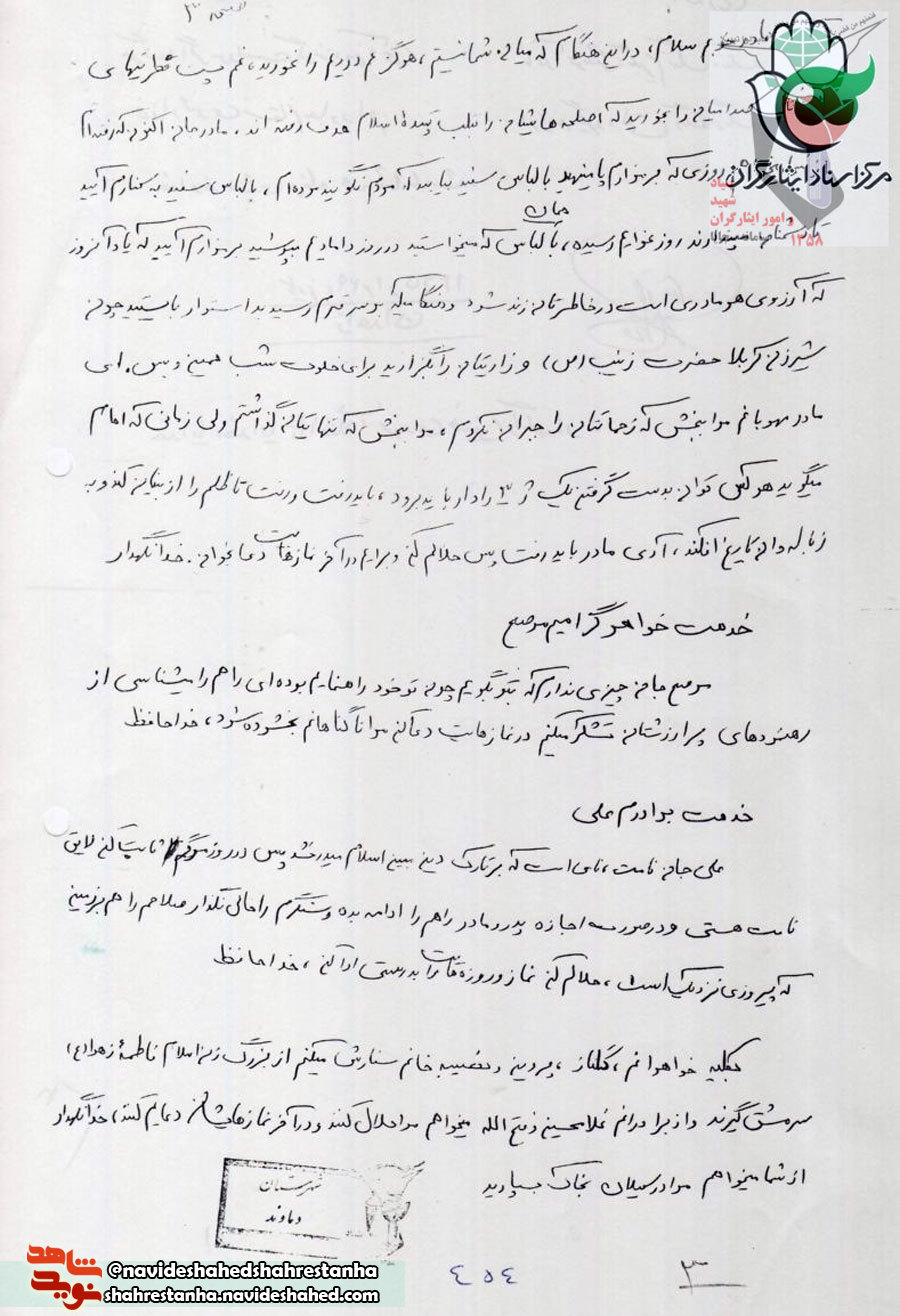 مادر خوبم سلام، در این هنگام که میان شما نیستم، هرگز غم دوریم را نخورید، غم
را بخورید که اصلحه هاشان را بقلب تپنده اسلام هدف رفته اند، مادر جان اکنون که رفته ام
روزی که بر مزارم پا مینهید با لباس سفید بیایید که مردم نگویند مرده ام، با لباس سفید به کنارم آیید
روز عزایم رسیده، با لباس همان که میخواستید در روز دامادیم بپوشید بر مزارم آیید که یاد آنروز
که آرزوی هر مادری است در خاطرتان زنده شود و هنگامیکه بر سر قبرم رسیدید استوار باستید چون
شیرزن کربلا حضرت زینب (س) و زاریتان را بگزارید برای خلوت شب همین و بس. ای
مادر مهربانم مرا ببخش که زحماتتان را جبران نکردم، مرا ببخش که تنهایتان گذاشتم ولی زمانی که امام
میگوید هر کس توان بدست گرفتن یک ژ ۳ را دارد باید برود، باید رفت و رفت تا ظلم را از بنیان کند و به
زباله دان تاریخ افکند، آری مادر باید رفت پس حلالم کن و برایم در آخر نمازهایت دعا بخوان. خدانگهدار
خدمت خواهر گرامیم مرضع
مرضع جان چیزی ندارم که بتو بگویم چون تو خود راهنمایم بوده ای راهم را میشناسی از
رهنمودهای پرارزشتان تشکر میکنم در نمازهایت دعا کن مرا تا گناهانم بخشوده شود، خداحافظ
خدمت برادرم علی
علی جان نامت، نامی است که بر تارک دین مبین اسلام میدرخشد پس در روز مرگم ثابت کن لایق
نامت هستی و در صورت اجازه پدر و مادر راهم را ادامه بده و سنگرم را خالی نگذار سلاحم را هم بر زمین
که پیروزی نزدیک است، حلالم کن نماز و روزه هایت را بدرستی ادا کن، خداحافظ
بکلیه خواهرانم، گلناز، پروین و نفیسه خانم سفارش میکنم از بزرگ زن اسلام فاطمه زهرا (ع)
سرمشق گیرند و از برادرانم غلامحسین ذبیح الله میخواهم مرا حلال کنند و در آخر نمازهایشان دعایم کنند، خدانگهدار
از شما میخواهم مرا در سیلان بخاک بسپارید
شهرستان
دماوند
۳
٤٥٤
مرکز اسناد ایثارگران
شهید
و امور ایثارگران
۱۳۵۸
نوید شاهد
@navideshahedshahrestanha
shahrestanha.navideshahed.com